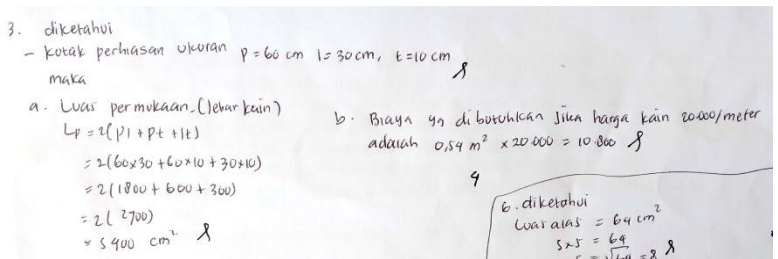 3. diketahui
- kotak perhiasan ukuran p = 60 cm l = 30 cm, t = 10 cm
maka
a. Luas permukaan (lebar kain)
Lp = 2(pl + pt + lt)
= 2(60x30 + 60x10 + 30x10)
= 2(1800 + 600 + 300)
= 2(2700)
= 5400 cm²
b. Biaya yg dibutuhkan jika harga kain 20.000/meter
adalah 0,54 m² x 20.000 = 10.800
4
6. diketahui
Luas alas = 64 cm²
s x s = 64
s = √64 = 8